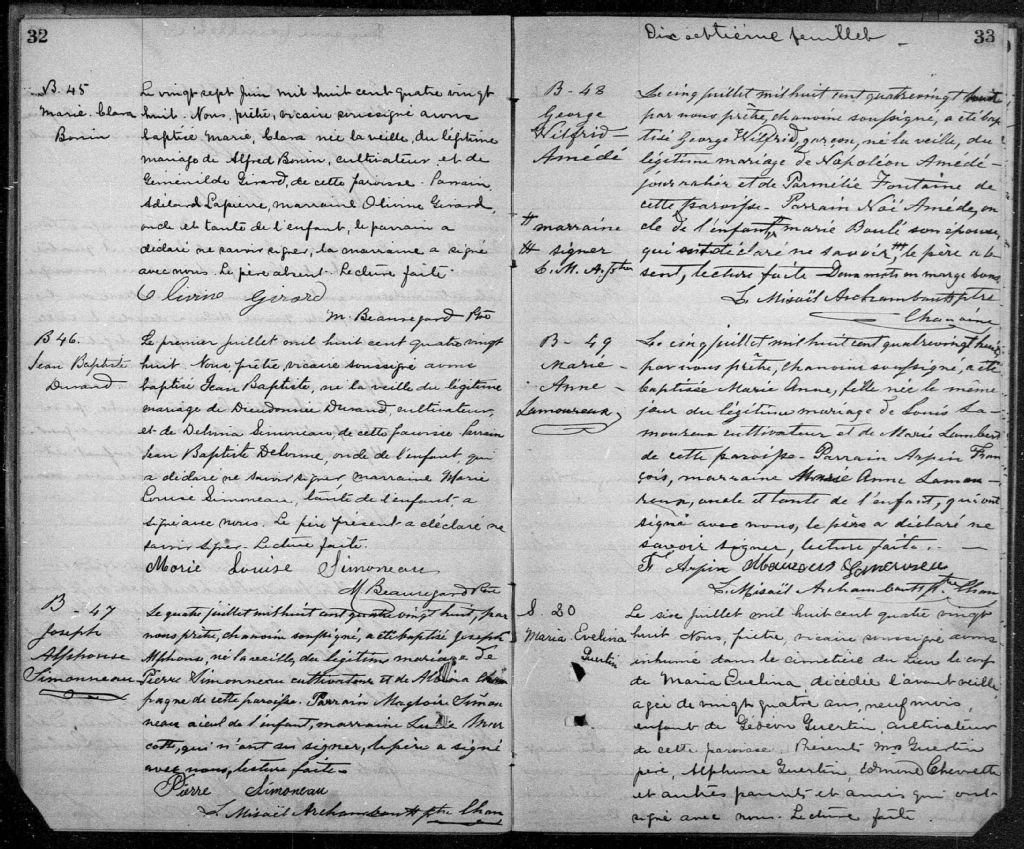 32
B. 45
Marie. Clara
Bonin
Le vingt sept Juin mil huit cent quatre vingt
huit. Nous, prêtre, vicaire soussigné avons
baptisé Marie, Clara née la veille, du légitime
mariage de Alfred Bonin, cultivateur et de
Girard, de cette paroisse. Parrain
Adélard Lapierre, marraine Olivine Girard,
oncle et tante de l'enfant, le parrain a
déclaré ne savoir signer, la marraine a signé
avec nous. Le père absent. Lecture faite
Olivine Girard
M. Beauregard Ptre
B 46.
Jean Baptiste
Durand
Le premier juillet mil huit cent quatre vingt
huit. Nous prêtre vicaire soussigné avons
baptisé Jean Baptiste, né la veille du légitime
mariage de Dieudonnée Durand, cultivateur,
et de Delvina Simoneau, de cette paroisse. Parrain
Jean Baptiste Delorme, oncle de l'enfant, qui
a déclaré ne savoir signer, marraine Marie
Louise Simoneau, tante de l'enfant, a
signé avec nous. Le père présent a déclaré ne
savoir signer. Lecture faite.
Marie Louise Simoneau
M. Beauregard Ptre
B - 47
Joseph
Alphonse
Simonneau
Le quatre juillet mil huit cent quatre vingt huit, par
nous, prêtre, chanoine soussigné, a été baptisé Joseph
Alphonse, né la veille, du légitime mariage de
Pierre Simonneau cultivateur et de
pagne de cette paroisse. Parrain Magloire Simon
neau aieul de l'enfant, marraine
cotte, qui n'ont su signer, le père a signé
avec nous, lecture faite -
Pierre Simoneau
L. Misaël Archambault ptre Chan
Dix septième feuillet -
33
B - 48
George
Wilfrid -
Amédé
# marraine
# signer
L. M. A. ptre
Le cinq juillet mil huit cent quatrevingt huit
par nous prêtre, chanoine soussigné, a été bap
tisé George Wilfrid, garçon, né la veille, du
légitime mariage de Napoléon Amédé -
journalier et de Parmélie Fontaine de
cette paroisse - Parrain Noé Amédé, on
cle de l'enfant, # marié Baulé son épouse,
qui ont déclaré ne savoir, # le père ab
sent, lecture faite Deux mots en marge bons
L. Misaël Archambault ptre
Chanoine
B - 49
Marie -
Anne -
Lamoureux
Le cinq juillet mil huit cent quatrevingt huit
par nous prêtre, chanoine soussigné, a été
baptisée Marie Anne, fille née le même
jour du légitime mariage de Louis La-
moureux cultivateur et de Marie Lambert
de cette paroisse - Parrain Arpin Fran
çois, marraine Marie Anne Lamou-
reux, oncle et tante de l'enfant, qui ont
signé avec nous, le père a déclaré ne
savoir signer, lecture faite. -
F Arpin Lamoureux
L. Misaël Archambault ptre Chan
S. 20
Maria. Evelina
Guertin
Le six juillet mil huit cent quatre vingt
huit. Nous, prêtre, vicaire soussigné avons
inhumé dans le cimetière du lieu le corps
de Maria Evelina, décédée l'avant veille
agée de vingt quatre ans, neuf mois,
enfant de Gédéon Guertin, cultivateur
de cette paroisse. Présents Mrs Guertin
père, Alphonse Guertin, Edmond Chevrette
et autres parents et amis qui ont
signé avec nous. Lecture faite.